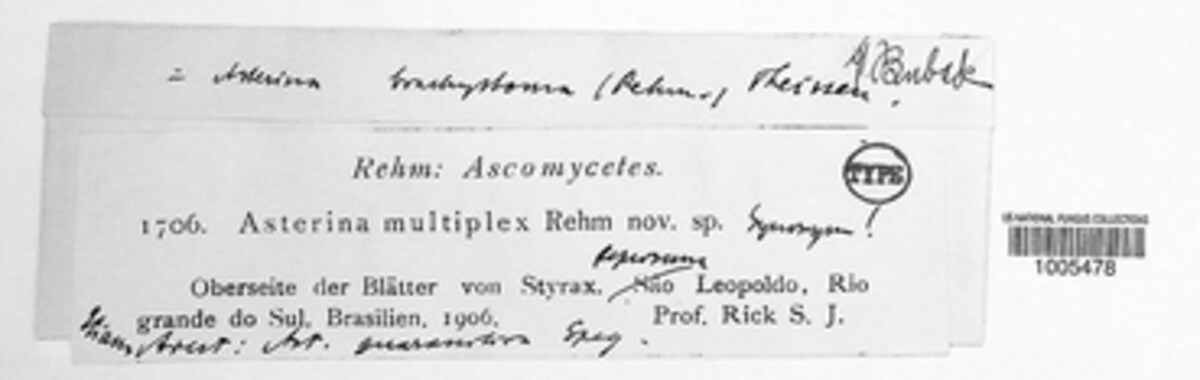 = Asterina brachystoma (Rehm.) Theissen. Bubák
Rehm: Ascomycetes.
TYPE
1706. Asterina multiplex Rehm nov. sp. Synonym!
leprosum
Oberseite der Blätter von Styrax. São Leopoldo, Rio
grande do Sul. Brasilien, 1906. Prof. Rick S. J.
Arest: Ast. guaranitica Speg.
US NATIONAL FUNGUS COLLECTIONS
1005478